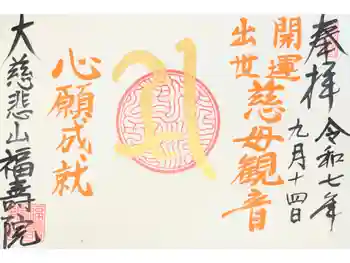 奉拝
令和七年
九月十四日
開運
出世
慈母観音
心願成就
大慈悲山福寿院